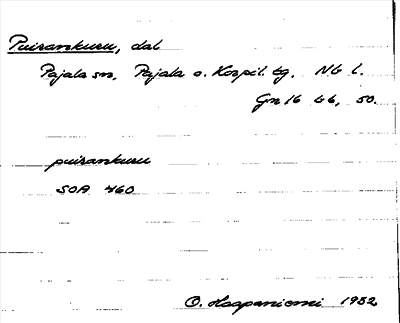 Puirankuru, dal
Pajala sn. Pajala o. Korpil. tg. Nb l.
Gn 16 46, 50.
puirankuru
SOA 460
O. Haapaniemi 1982